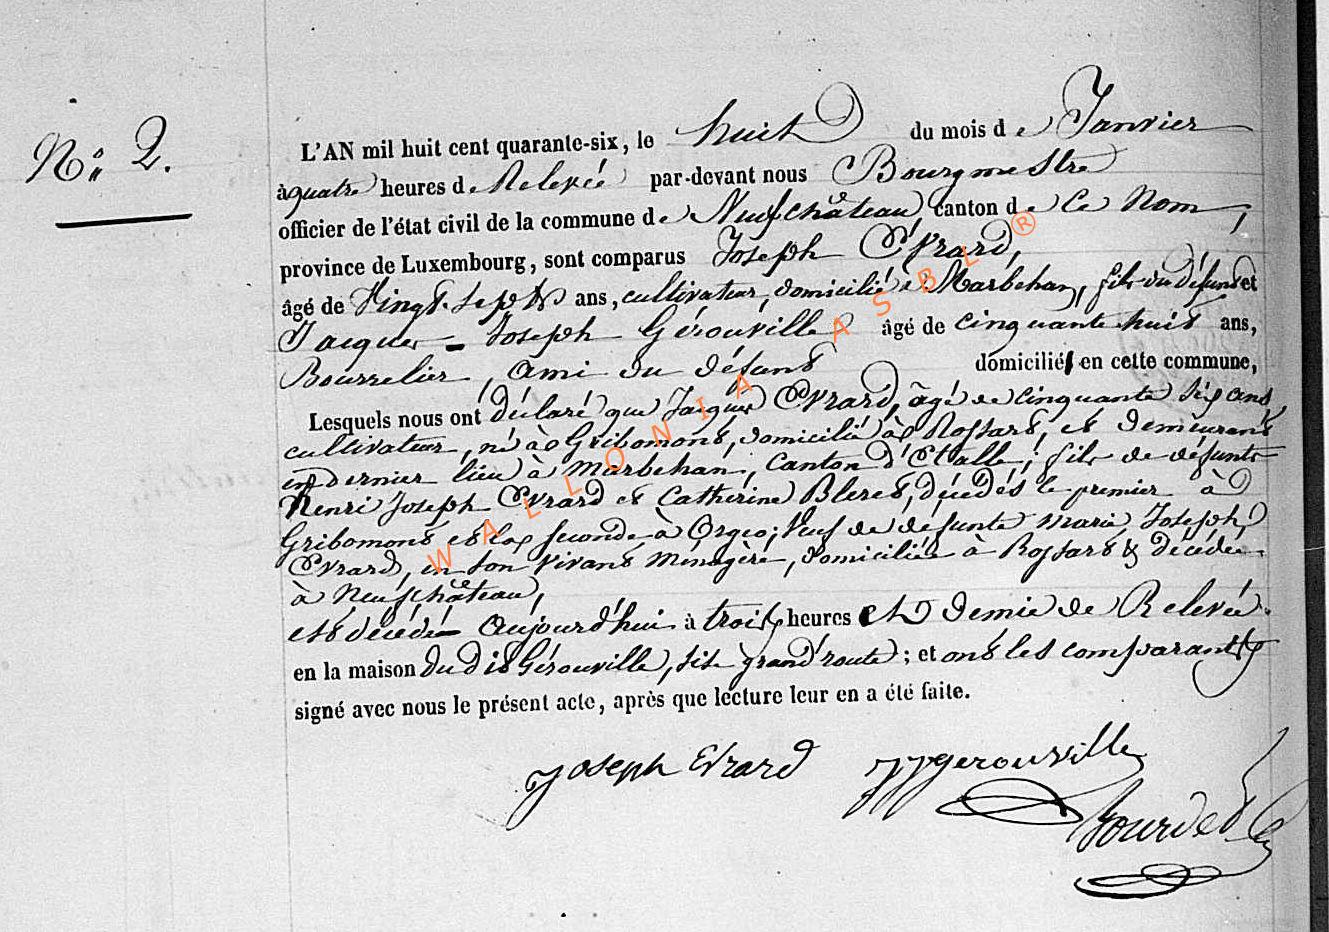 N.o 2.
L'AN mil huit cent quarante-six, le huit du mois de Janvier
à quatre heures de Relevée par-devant nous Bourgmestre
officier de l'état civil de la commune de Neufchâteau, canton de ce Nom,
province de Luxembourg, sont comparus Joseph Evrard,
âgé de Vingt-sept ans, cultivateur, domicilié à Marbehan, fils du défunt et
Jacques - Joseph Gérouville âgé de cinquante huit ans,
Bourrelier, ami du défunt domicilié en cette commune,
Lesquels nous ont déclaré que Jacques Evrard, âgé de cinquante six ans,
cultivateur, né à Gribomont, domicilié à Rossart, et demeurant
en dernier lieu à Marbehan, Canton d'Etalle; fils de défunts
Henri Joseph Evrard et Catherine Bleret, décédés le premier à
Gribomont et la seconde à Orgeo; Veuf de defunte Marie Joseph
Evrard, en son vivant Ménagère, domiciliée à Rossart & décédée
à Neufchâteau,
est décédé aujourd'hui à trois heures et Demie de Relevée
en la maison dudit Gérouville, sise grand'route; et ont les comparants
signé avec nous le présent acte, après que lecture leur en a été faite.
Joseph Evrard JJgerouville
WALLONIA ASBL ®